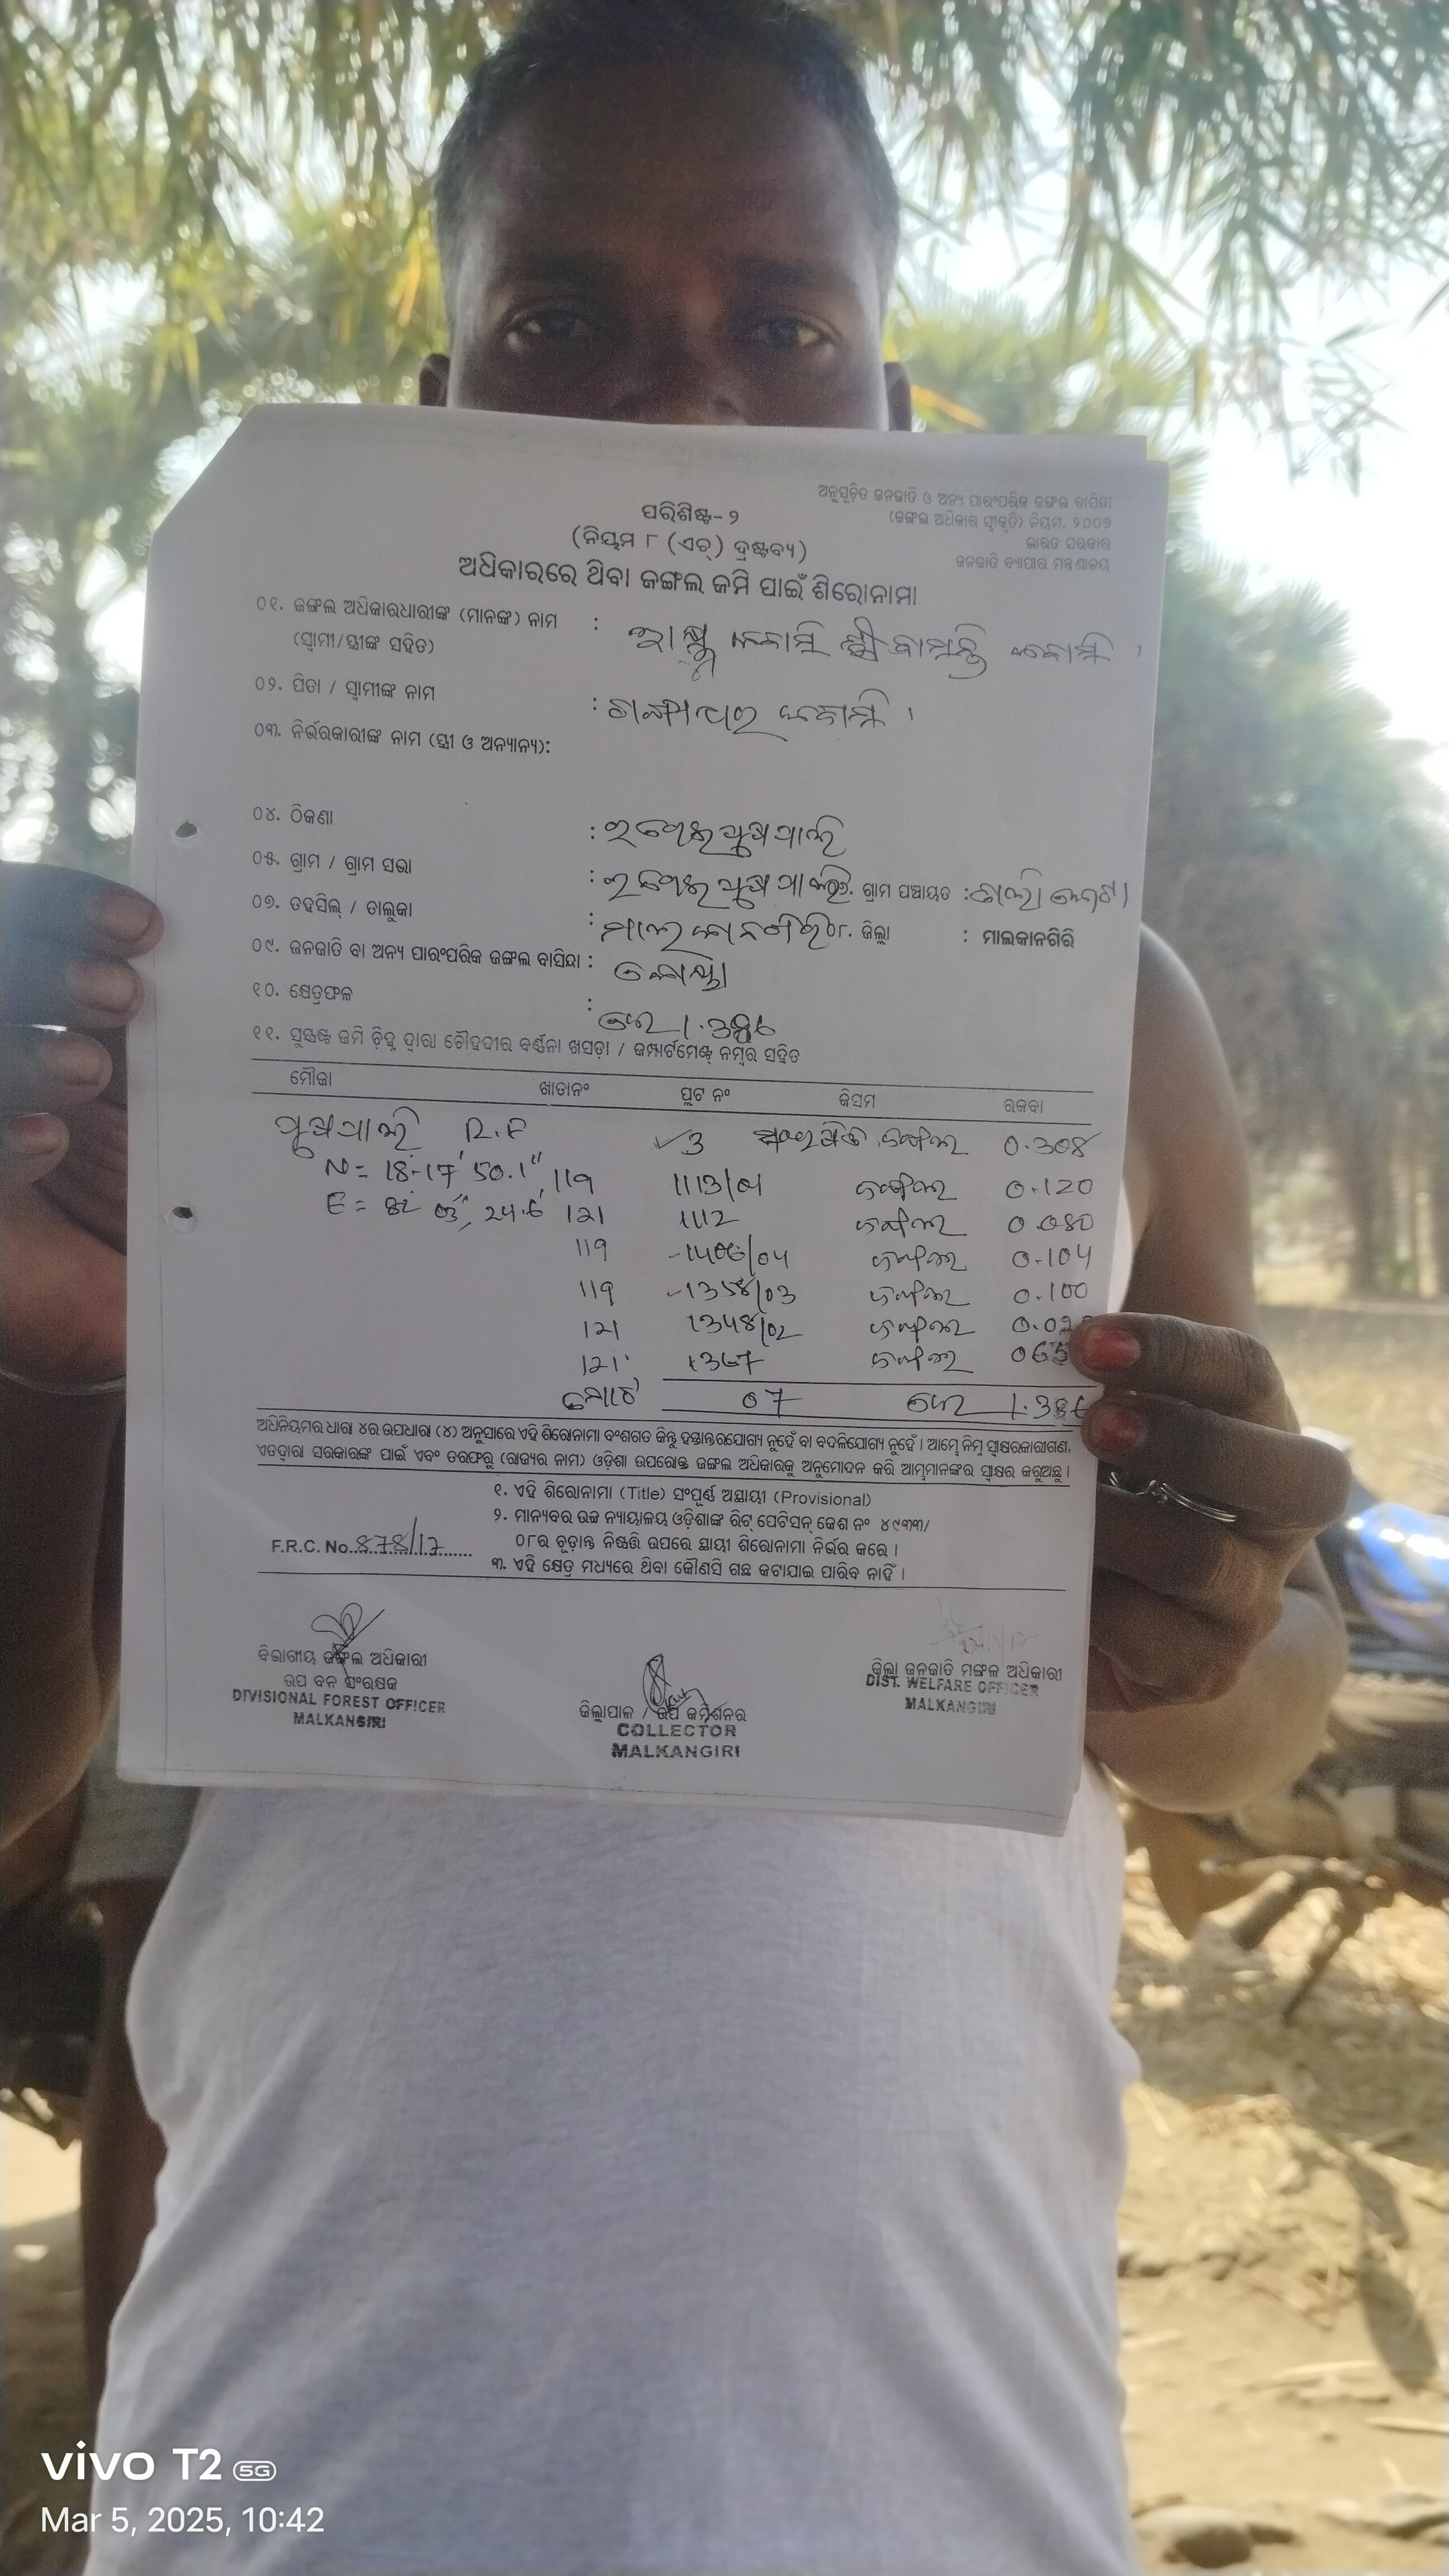 ଅନୁସୂଚିତ ଜନଜାତି ଓ ଅନ୍ୟ ପାରଂପରିକ ଜଙ୍ଗଲ ବାସିନ୍ଦା
(ଜଙ୍ଗଲ ଅଧିକାର ସ୍ୱୀକୃତି) ନିୟମ, ୨୦୦୭
ଭାରତ ସରକାର
ଜନଜାତି ବ୍ୟାପାର ମନ୍ତ୍ରଣାଳୟ
ପରିଶିଷ୍ଟ- ୨
(ନିୟମ ୮ (ଏଚ୍) ଦ୍ରଷ୍ଟବ୍ୟ)
ଅଧିକାରରେ ଥିବା ଜଙ୍ଗଲ ଜମି ପାଇଁ ଶିରୋନାମା
୦୧. ଜଙ୍ଗଲ ଅଧିକାରଧାରୀଙ୍କ (ମାନଙ୍କ) ନାମ :
(ସ୍ୱାମୀ/ସ୍ତ୍ରୀଙ୍କ ସହିତ)
୦୨. ପିତା / ସ୍ୱାମୀଙ୍କ ନାମ :
୦୩. ନିର୍ଭରକାରୀଙ୍କ ନାମ (ସ୍ତ୍ରୀ ଓ ଅନ୍ୟାନ୍ୟ):
୦୪. ଠିକଣା :
୦୫. ଗ୍ରାମ / ଗ୍ରାମ ସଭା : ଗ୍ରାମ ପଞ୍ଚାୟତ :
୦୭. ତହସିଲ୍ / ତାଲୁକା : ମାଲକାନଗିରି ୦୮. ଜିଲ୍ଲା : ମାଲକାନଗିରି
୦୯. ଜନଜାତି ବା ଅନ୍ୟ ପାରଂପରିକ ଜଙ୍ଗଲ ବାସିନ୍ଦା : କୋୟା
୧୦. କ୍ଷେତ୍ରଫଳ :
୧୧. ସୁସ୍ପଷ୍ଟ ଜମି ଚିହ୍ନ ଦ୍ୱାରା ଚୌହଦୀର ବର୍ଣ୍ଣନା ଖସଡ଼ା / କମ୍ପାର୍ଟମେଣ୍ଟ୍ ନମ୍ବର ସହିତ
ମୌଜା ଖାତାନଂ ପ୍ଲଟ ନଂ କିସମ ରକବା
R.F 3 ଜଙ୍ଗଲ 0.308
N= 18-17' 50.1" 119 1113/01 ଜଙ୍ଗଲ 0.120
E = 82 03', 24.6' 121 1112 ଜଙ୍ଗଲ 0.080
119 ଜଙ୍ଗଲ 0.104
119 1358/03 ଜଙ୍ଗଲ 0.100
121 1348/02 ଜଙ୍ଗଲ
121 1367 ଜଙ୍ଗଲ
ମୋଟ 07
ଅଧିନିୟମର ଧାରା ୪ର ଉପଧାରା (୪) ଅନୁସାରେ ଏହି ଶିରୋନାମା ବଂଶଗତ କିନ୍ତୁ ହସ୍ତାନ୍ତରଯୋଗ୍ୟ ନୁହେଁ ବା ବଦଳିଯୋଗ୍ୟ ନୁହେଁ । ଆମ୍ଭେ ନିମ୍ନ ସ୍ୱାକ୍ଷରକାରୀଗଣ,
ଏତଦ୍ଵାରା ସରକାରଙ୍କ ପାଇଁ ଏବଂ ତରଫରୁ (ରାଜ୍ୟର ନାମ) ଓଡ଼ିଶା ଉପରୋକ୍ତ ଜଙ୍ଗଲ ଅଧିକାରକୁ ଅନୁମୋଦନ କରି ଆମ୍ଭମାନଙ୍କର ସ୍ୱାକ୍ଷର କରୁଅଛୁ ।
୧. ଏହି ଶିରୋନାମା (Title) ସଂପୂର୍ଣ୍ଣ ଅସ୍ଥାୟୀ (Provisional)
୨. ମାନ୍ୟବର ଉଚ୍ଚ ନ୍ୟାୟାଳୟ ଓଡ଼ିଶାଙ୍କ ରିଟ୍ ପେଟିସନ୍ କେଶ ନଂ ୪୯୩୩/
୦୮ର ଚୂଡ଼ାନ୍ତ ନିଷ୍ପତ୍ତି ଉପରେ ସ୍ଥାୟୀ ଶିରୋନାମା ନିର୍ଭର କରେ ।
F.R.C. No. 878/17
୩. ଏହି କ୍ଷେତ୍ର ମଧ୍ୟରେ ଥିବା କୌଣସି ଗଛ କଟାଯାଇ ପାରିବ ନାହିଁ ।
ବିଭାଗୀୟ ଜଙ୍ଗଲ ଅଧିକାରୀ
ଉପ ବନ ସଂରକ୍ଷକ
DIVISIONAL FOREST OFFICER
MALKANGIRI
ଜିଲ୍ଲାପାଳ / ଉପ କମିଶନର
COLLECTOR
MALKANGIRI
ଜିଲ୍ଲା ଜନଜାତି ମଙ୍ଗଳ ଅଧିକାରୀ
DIST. WELFARE OFFICER
MALKANGIRI
vivo T2 5G
Mar 5, 2025, 10:42